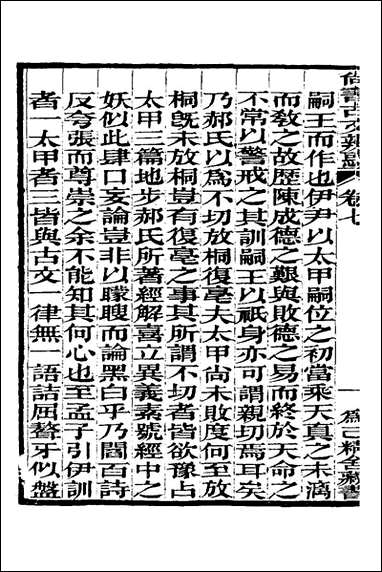 卷七
嗣王而作也伊尹以太甲嗣位之初當乘天真之未漓
而敎之故歷陳成德之艱與敗德之易而終於天命之
不常以警戒之其訓嗣王以祇身亦可謂親切焉耳矣
乃郝氏以為不切放桐復亳夫太甲尚未敗度何至放
桐旣未放桐豈有復亳之事其所謂不切者皆欲豫占
太甲三篇地步郝氏所著經解喜立異義素號經中之
妖似此肆口妄論豈非以矇瞍而論黑白乎乃閻百詩
反夸張而尊崇之余不能知其何心也至孟子引伊訓
者一太甲者三皆與古文一律無一語詰屈聱牙似盤
一
為己精舍藏書